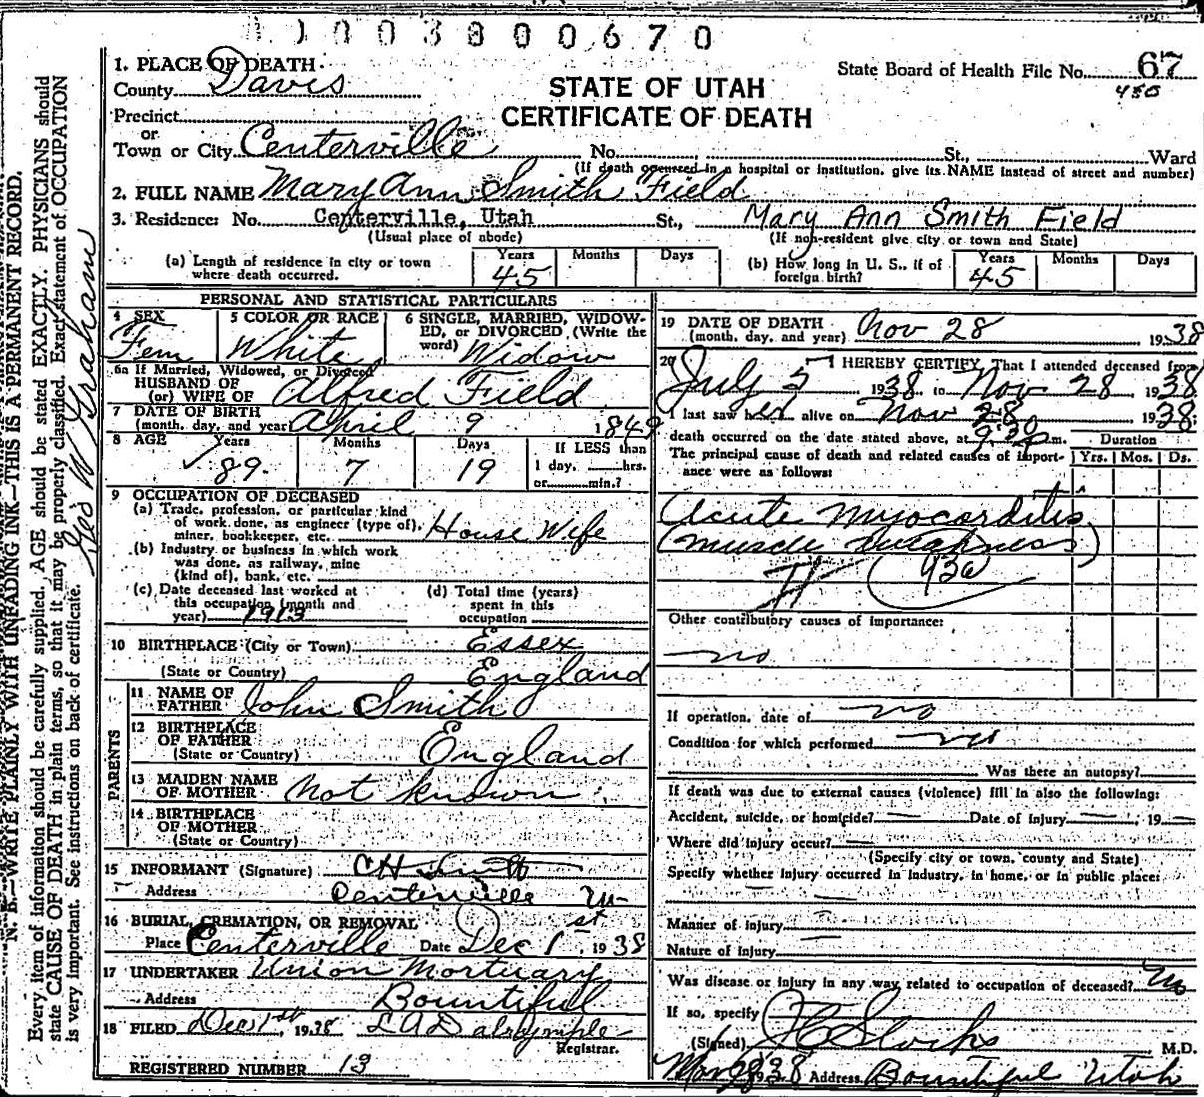 1003800670
1. PLACE OF DEATH
County Davis
STATE OF UTAH
CERTIFICATE OF DEATH
State Board of Health File No. 67
480
Precinct
or
Town or City Centerville No. St., Ward
(If death occurred in a hospital or institution, give its NAME instead of street and number)
2. FULL NAME Mary Ann Smith Field
3. Residence: No. Centerville, Utah St., Mary Ann Smith Field
(Usual place of abode) (If non-resident give city or town and State)
(a) Length of residence in city or town where death occurred. Years 45 Months Days
(b) How long in U. S., if of foreign birth? Years 45 Months Days
PERSONAL AND STATISTICAL PARTICULARS
4 SEX Fem
5 COLOR OR RACE White
6 SINGLE, MARRIED, WIDOWED, or DIVORCED (Write the word) Widow
6a If Married, Widowed, or Divorced
HUSBAND OF
(or) WIFE OF Alfred Field
7 DATE OF BIRTH
(month, day, and year) April 9 1849
8 AGE Years 89 Months 7 Days 19 If LESS than
1 day, hrs.
or min.?
9 OCCUPATION OF DECEASED
(a) Trade, profession, or particular kind
of work done, as engineer (type of),
miner, bookkeeper, etc. House Wife
(b) Industry or business in which work
was done, as railway, mine
(kind of), bank, etc.
(c) Date deceased last worked at
this occupation (month and
year) 1913
(d) Total time (years)
spent in this
occupation
10 BIRTHPLACE (City or Town) Essex
(State or Country) England
PARENTS
11 NAME OF
FATHER John Smith
12 BIRTHPLACE
OF FATHER
(State or Country) England
13 MAIDEN NAME
OF MOTHER Not known
14 BIRTHPLACE
OF MOTHER
(State or Country)
15 INFORMANT (Signature) C H Smith
Address Centerville U
16 BURIAL, CREMATION, OR REMOVAL
Place Centerville Date Dec 1st 1938
17 UNDERTAKER Union Mortuary
Address Bountiful
18 FILED Dec 1st, 1938 L A Dalrymple
Registrar.
REGISTERED NUMBER 13
19 DATE OF DEATH
(month, day, and year) Nov 28 1938
20 I HEREBY CERTIFY, That I attended deceased from
July 5 1938 to Nov 28 1938
I last saw her alive on Nov 28 1938
death occurred on the date stated above, at 9.30 p m.
Duration
The principal cause of death and related causes of importance were as follows: Yrs. Mos. Ds.
Acute Myocarditis
(muscle weakness)
93a
Other contributory causes of importance:
no
If operation, date of no
Condition for which performed no
Was there an autopsy?
If death was due to external causes (violence) fill in also the following:
Accident, suicide, or homicide? — Date of injury —, 19—
Where did injury occur? —
(Specify city or town, county and State)
Specify whether injury occurred in industry, in home, or in public place:
—
Manner of injury —
Nature of injury
Was disease or injury in any way related to occupation of deceased? No
If so, specify
(Signed) Stocks M.D.
Nov 28 1938 Address Bountiful Utah
N. B.—WRITE PLAINLY WITH UNFADING INK—THIS IS A PERMANENT RECORD.
Every item of information should be carefully supplied. AGE should be stated EXACTLY. PHYSICIANS should
state CAUSE OF DEATH in plain terms, so that it may be properly classified. Exact statement of OCCUPATION
is very important. See instructions on back of certificate.
Geo W Graham